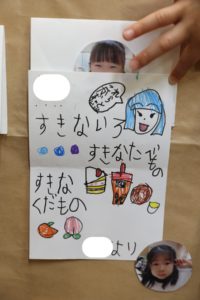 すきないろ
すきなたべもの
すきな
くだもの
より